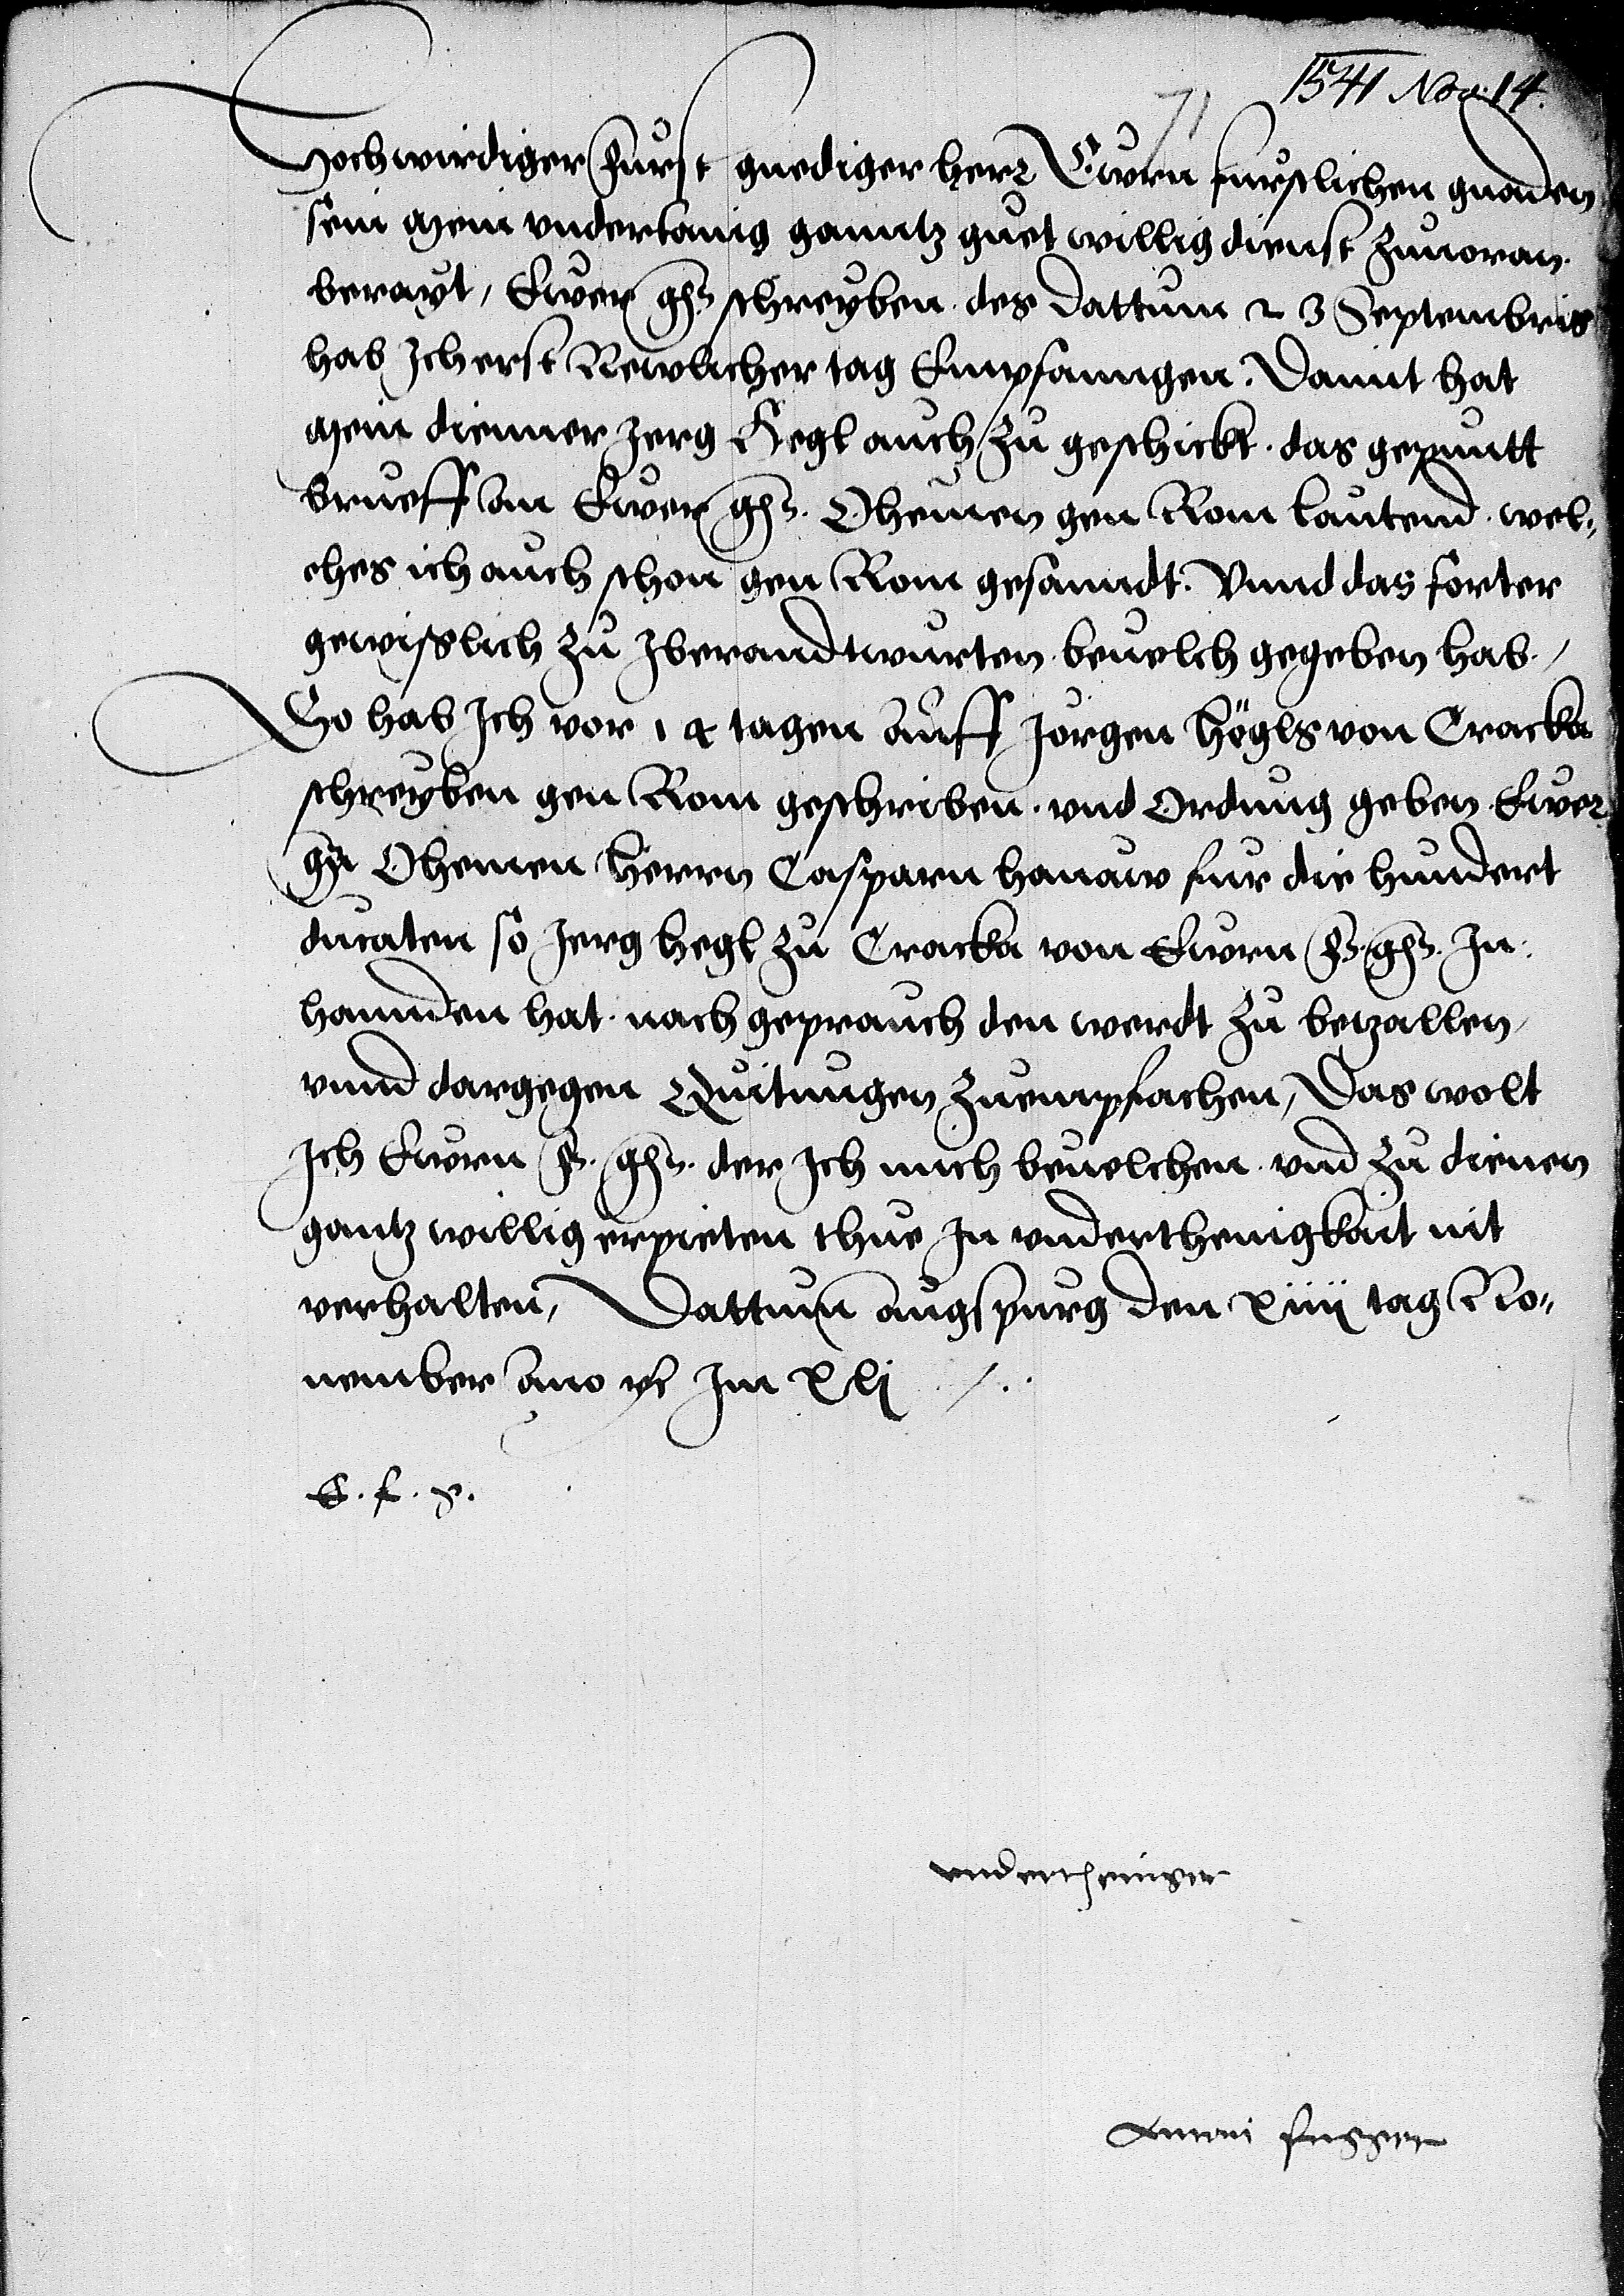 1541 Nov. 14.
71
Hochwirdiger Furst gnediger herr Ewrn furstlichen gnaden
sein mein vndertanig ganntz guet willig dienst zuuoran
berayt, Ewer gn. schreyben des Dattum 23 Septembris
hab Ich erst Newlicher tag Empfanngen. Damit hat
mein dienner Jerg Hegl auch zu geschickt. das gepuntt
brueff an Ewer gn. Ohemen gen Rom lautend. wel-
ches ich auch schon gen Rom gesanndt. Vnnd das forter
gewisslich zu Iberandtwurten beuelch gegeben hab.
So hab Ich vor 14 tagen auff Jorgen Högls von Cracka
schreyben gen Rom geschriben. vnd Ordnung geben Ewer
gn Ohemen Herrn Casparn hanaw fur die hundert
ducaten so Jerg hegl zu Cracka von Ewrn F. gn. In
hannden hat. nach geprauch den werdt zu betzallen,
vnnd dargegen Quitungen zuempfachen, Das wolt
Ich Ewrn F. gn. der Ich mich beuelchen vnd zu dienen
gantz willig erpieten thue In vnderthenigkait nit
verhalten, Dattum Augspurg den xiiij tag No-
uember Ano etc Im xlj
E. f. g.
vndertheniger
Antoni Fugger